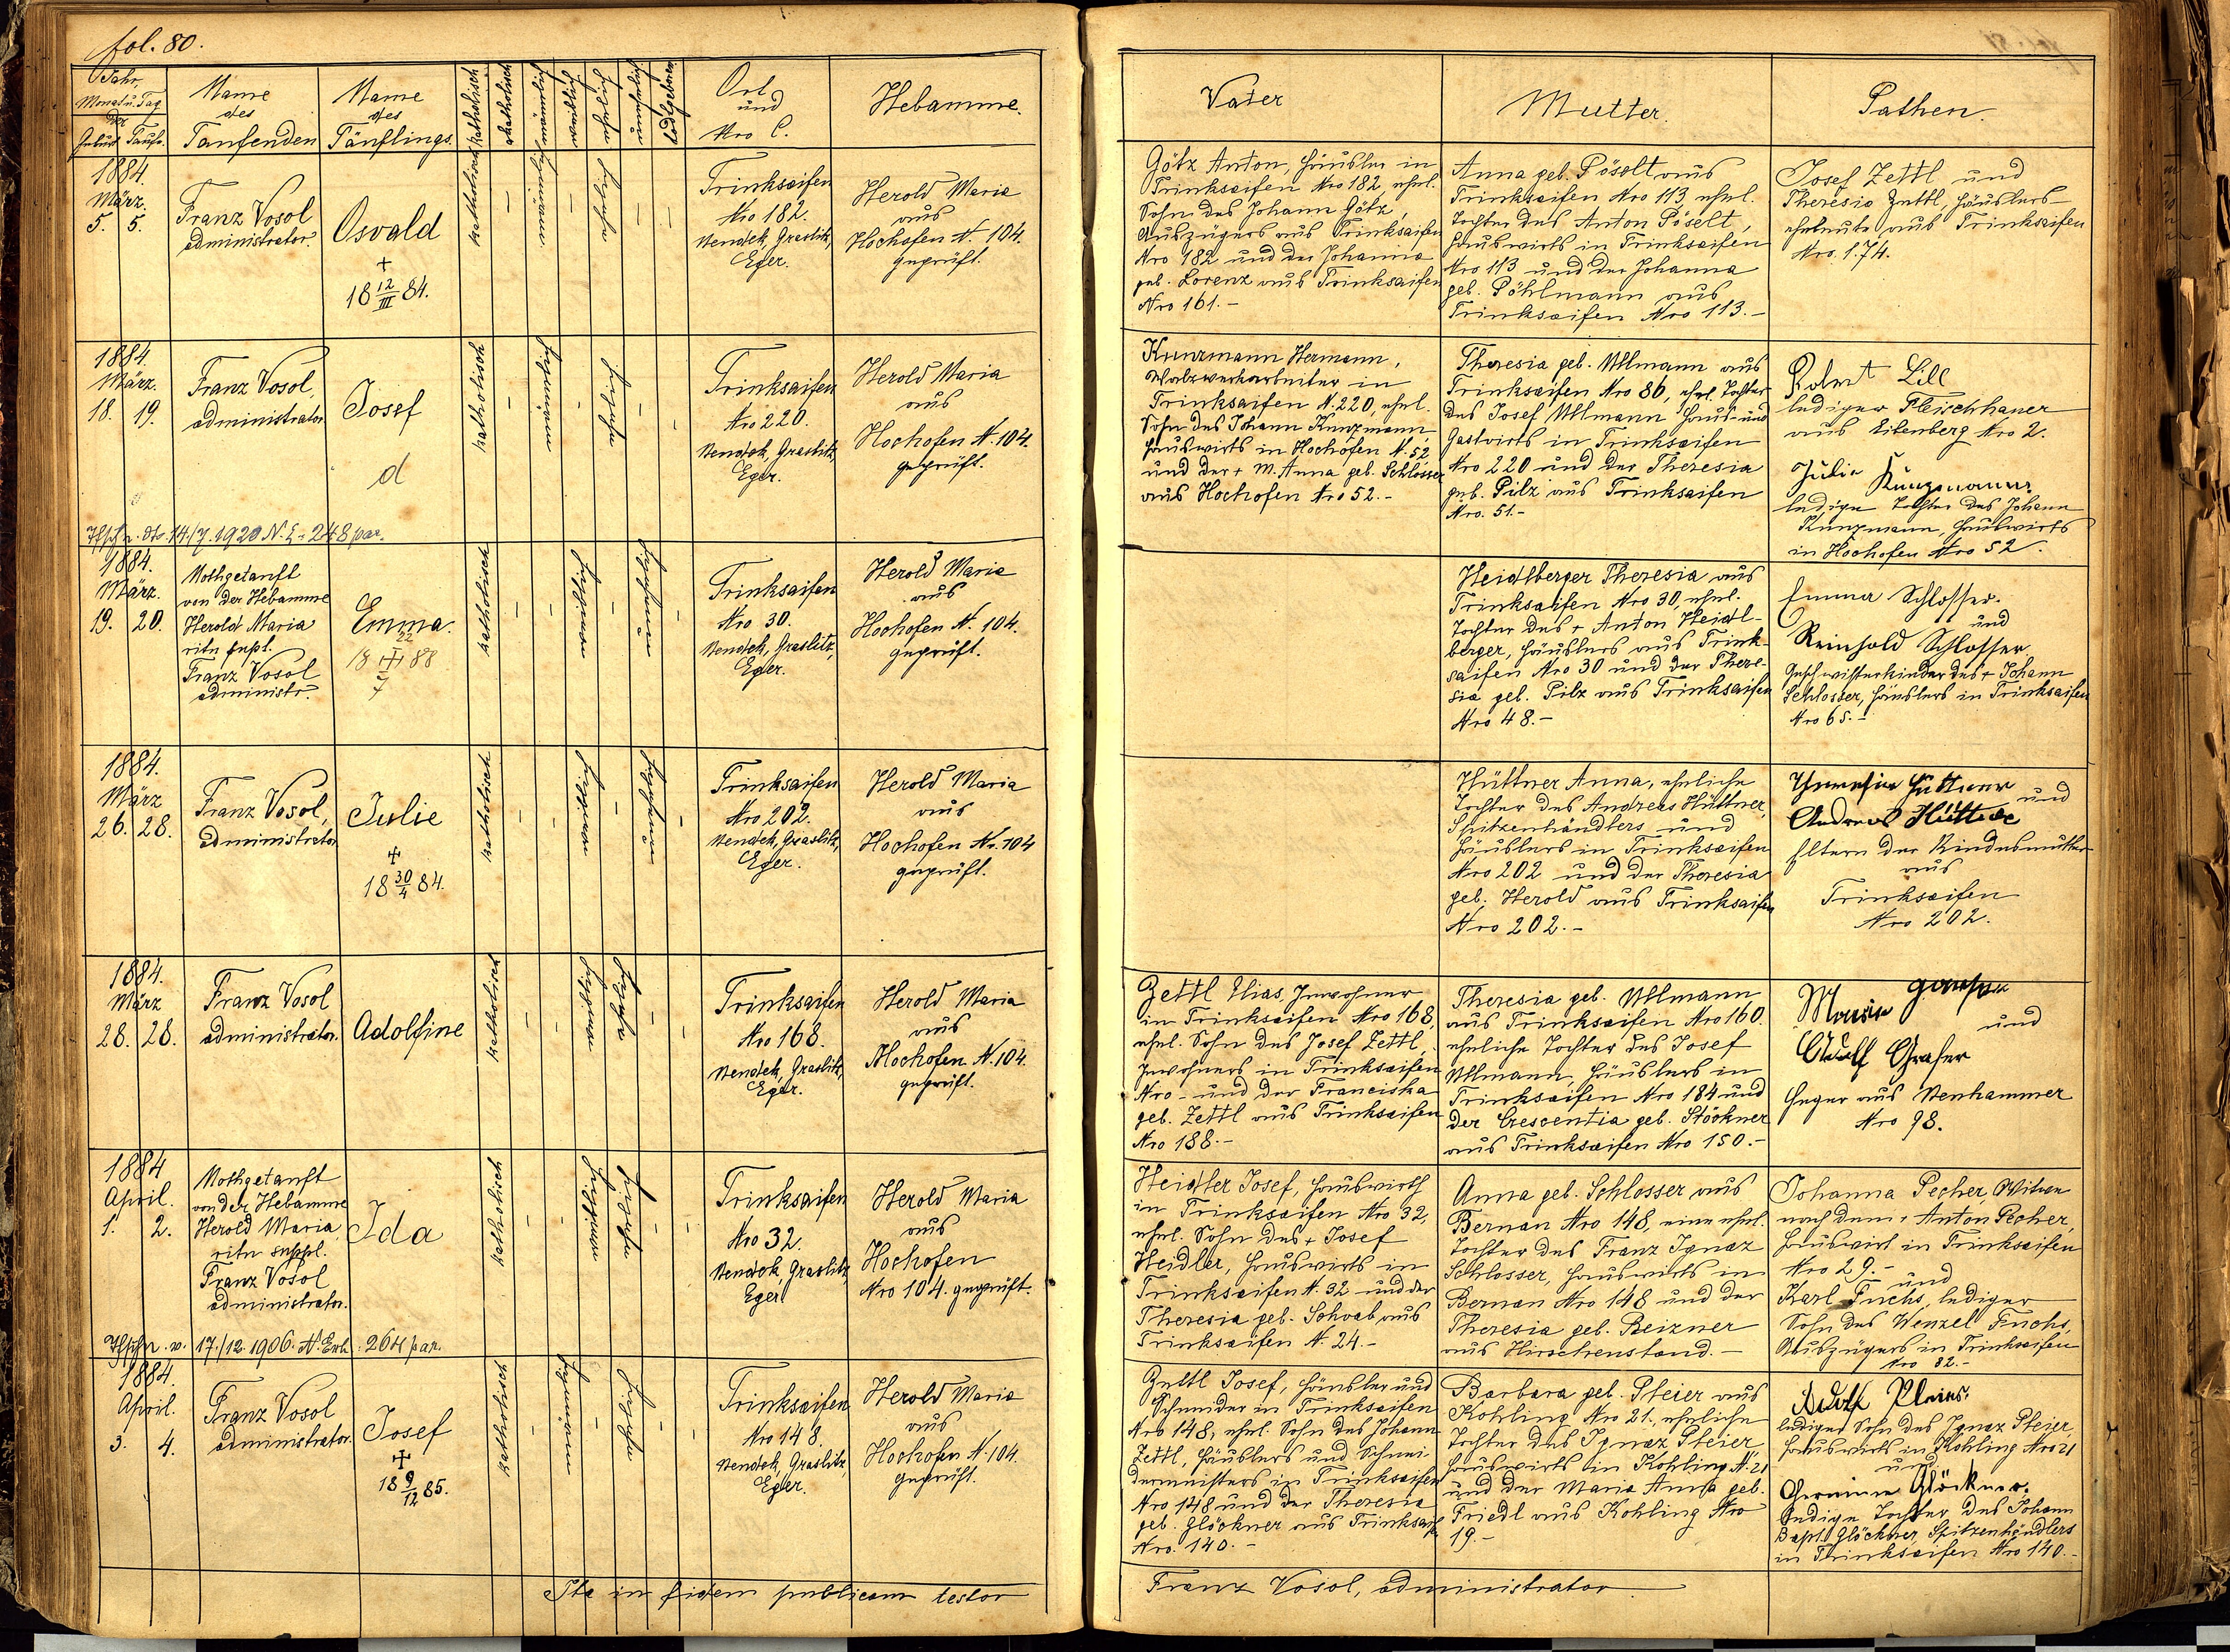 fol. 80.
Jahr,
Monat u. Tag
der
Geburt Taufe.
Name
des
Taufenden
Name
des
Täuflings.
katholisch
akatholisch
todtgeboren
Ort
und
Nro C.
Hebamme.
Vater
Mutter.
Pathen.
1884.
März.
5. 5.
Franz Vosol
administrator.
Osvald
+
18 12/III 84.
katholisch
Trinksaifen
Nro 182.
Neudek, Graslitz,
Eger.
Herold Maria
aus
Hochofen N. 104.
geprüft.
Götz Anton, Häusler in
Trinksaifen Nro 182, ehel.
Sohn des Johann Götz,
Auszügers aus Trinksaifen
Nro 182 und der Johanna
geb. Lorenz aus Trinksaifen
Nro 161.-
Anna geb. Pöselt aus
Trinksaifen Nro 113, ehel.
Tochter des Anton Pöselt,
Hauswirts in Trinksaifen
Nro 113 und der Johanna
geb. Pöhlmann aus
Trinksaifen Nro 113.-
Josef Zettl und
Theresia Zettl, Häuslers-
eheleute aus Trinksaifen
Nro. 174.
1884.
März.
18. 19.
Franz Vosol,
administrator
Josef
d
katholisch
Trinksaifen
Nro 220.
Neudek, Graslitz,
Eger.
Herold Maria
aus
Hochofen N. 104.
geprüft.
Kunzmann Hermann,
Walzwerkarbeiter in
Trinksaifen N. 220, ehel.
Sohn des Johann Kunzmann,
Hauswirts in Hochofen N. 52
und der + M. Anna geb. Schlosser
aus Hochofen Nro 52.-
Theresia geb. Ullmann aus
Trinksaifen Nro 86, ehel. Tochter
des Josef Ullmann Haus- und
Gastwirts in Trinksaifen
Nro 220 und der Theresia
geb. Pilz aus Trinksaifen
Nro. 51.-
Robert Lill
lediger Fleischhauer
aus Eibenberg Nro 2.
Julie Kunzmann,
ledige Tochter des Johann
Kunzmann, Hauswirts
in Hochofen Nro 52.
14./7. 1920 N. E. 248 par.
1884.
März.
19. 20.
Nothgetauft
von der Hebamme
Herold Maria
ritu supl.
Franz Vosol
administr.
Emma.
18 22/I 88
7
katholisch
Trinksaifen
Nro 30.
Neudek, Graslitz,
Eger.
Herold Maria
aus
Hochofen N. 104.
geprüft.
Heidlberger Theresia aus
Trinksaifen Nro 30, ehel.
Tochter des + Anton Heidl-
berger, Häuslers aus Trink-
saifen Nro 30 und der There-
sia geb. Pilz aus Trinksaifen
Nro 48.-
Emma Schlosser.
und
Reinhold Schlosser
Geschwisterkinder des + Johann
Schlosser, Häuslers in Trinksaifen
Nro 65.-
1884.
März
26. 28.
Franz Vosol,
administrator
Julie
+
18 30/4 84.
katholisch
Trinksaifen
Nro 202.
Neudek, Graslitz,
Eger.
Herold Maria
aus
Hochofen Nr. 104
geprüft.
Hüttner Anna, eheliche
Tochter des Andreas Hüttner,
Spitzenhändlers und
Häuslers in Trinksaifen
Nro 202 und der Theresia
geb. Herold aus Trinksaifen
Nro 202.-
Theresia Hüttner
und
Andreas Hüttner
Eltern der Kindesmutter
aus
Trinksaifen
Nro 202.
1884.
März
28. 28.
Franz Vosol
administrator.
Adolfine
katholisch
Trinksaifen
Nro 168.
Neudek, Graslitz,
Eger.
Herold Maria
aus
Hochofen N. 104.
geprüft.
Zettl Elias, Inwohner
in Trinksaifen Nro 168,
ehel. Sohn des Josef Zettl,
Inwohners in Trinksaifen
Nro - und der Franciska
geb. Zettl aus Trinksaifen
Nro 188.-
Theresia geb. Ullmann
aus Trinksaifen Nro 160.
eheliche Tochter des Josef
Ullmann, Häuslers in
Trinksaifen Nro 184 und
der Crescentia geb. Stöckner
aus Trinksaifen Nro 150.-
Maria
und
Adolf Graser
Heger aus Neuhammer
Nro 98.
1884
April.
1. 2.
Nothgetauft
von der Hebamme
Herold Maria
ritu suppl.
Franz Vosol
administrator.
Ida
katholisch
Trinksaifen
Nro 32.
Neudek, Graslitz
Eger
Herold Maria
aus
Hochofen
Nro 104. geprüft.
Heidler Josef, Hauswirth
in Trinksaifen Nro 32,
ehel. Sohn des + Josef
Heidler, Hauswirts in
Trinksaifen N. 32 und der
Theresia geb. Schwab aus
Trinksaifen N. 24.-
Anna geb. Schlosser aus
Bernau Nro 148, eine ehel.
Tochter des Franz Ignaz
Schlosser, Hauswirts in
Bernau Nro 148 und der
Theresia geb. Beizner
aus Hirschenstand.-
Johanna Pecher, Witwe
nach dem + Anton Pecher,
Hauswirt in Trinksaifen
Nro 29.- und
Karl Fuchs, lediger
Sohn des Wenzel Fuchs,
Auszügers in Trinksaifen
Nro 32.-
17./12. 1906. N. Erh. 264 par.
1884.
April.
3. 4.
Franz Vosol
administrator.
Josef
+
18 9/12 85.
katholisch
Trinksaifen
Nro 148.
Neudek, Graslitz,
Eger.
Herold Maria
aus
Hochofen N. 104.
geprüft.
Zettl Josef, Häusler und
Schneider in Trinksaifen
Nro 148, ehel. Sohn des Johann
Zettl, Häuslers und Schnei-
dermeisters in Trinksaifen
Nro 148 und der Theresia
geb. Glöckner aus Trinksaif.
Nro. 140.-
Barbara geb. Pleier aus
Kohling Nro 21., eheliche
Tochter des Ignaz Pleier,
Hauswirts in Kohling N. 21
und der Maria Anna geb.
Friedl aus Kohling Nro
19.-
Adolf Pleier.
lediger Sohn des Ignaz Pleier,
Hauswirts in Kohling Nro 21
und
Glöckner.
ledige Tochter des Johann
Bapt. Glöckner, Spitzenhändlers
in Trinksaifen Nro 140.-
Ita in fidem publicam testor
Franz Vosol, administrator